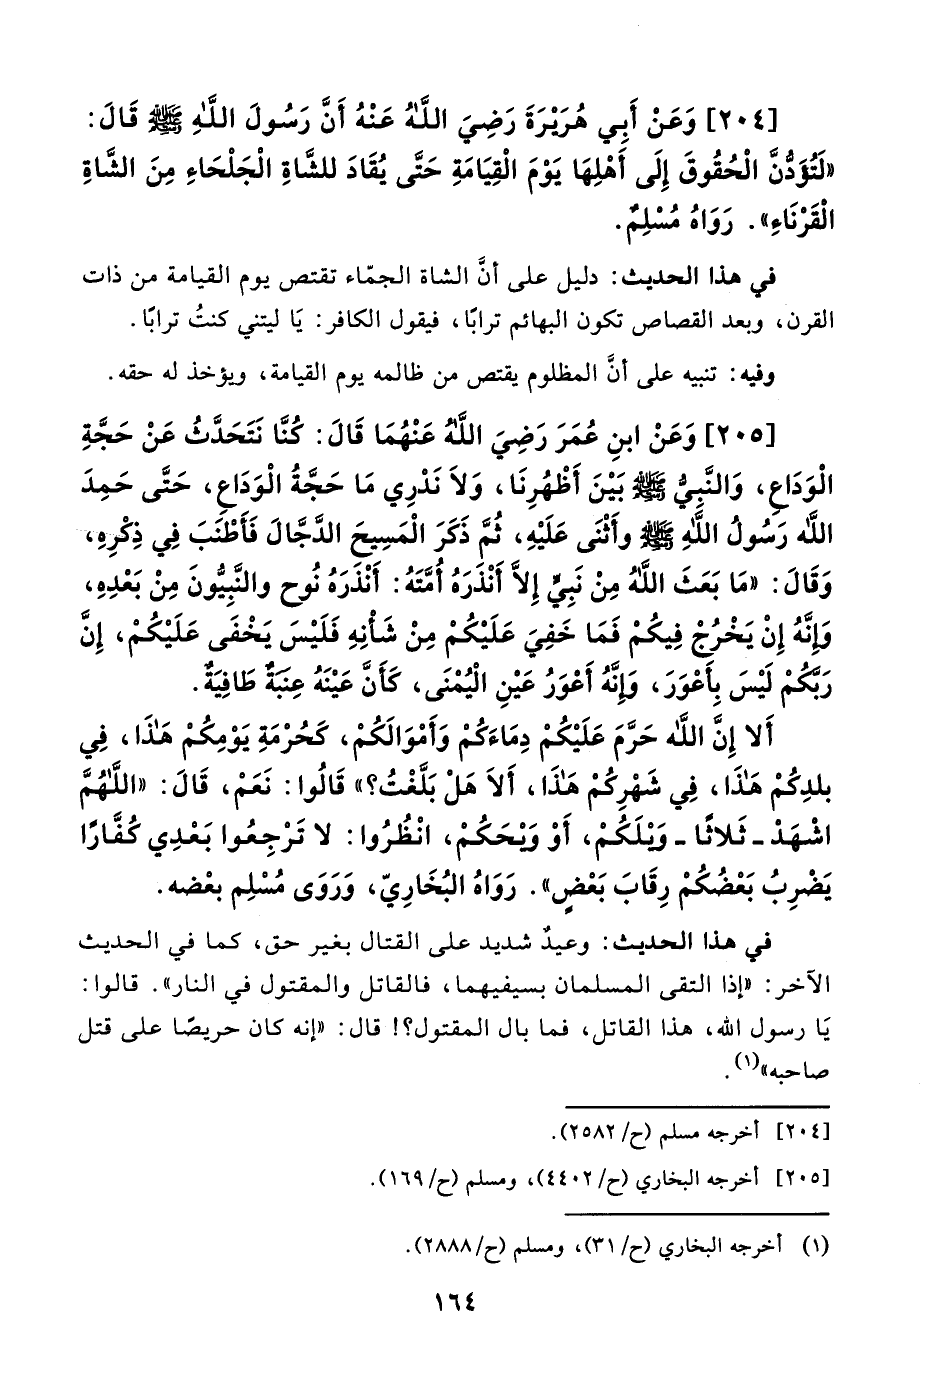 [٢٠٤] وَعَنْ أَبِي هُرَيْرَةَ رَضِيَ اللَّهُ عَنْهُ أَنَّ رَسُولَ اللَّهِ ﷺ قَالَ:
«لَتُؤَدُّنَّ الْحُقُوقَ إِلَى أَهْلِهَا يَوْمَ الْقِيَامَةِ حَتَّى يُقَادَ للشَّاةِ الْجَلْحَاءِ مِنَ الشَّاةِ
الْقَرْنَاءِ». رَوَاهُ مُسْلِمٌ.
في هذا الحديث: دليل على أنَّ الشاة الجمّاء تقتص يوم القيامة من ذات
القرن، وبعد القصاص تكون البهائم ترابًا، فيقول الكافر: يَا ليتني كنتُ ترابًا.
وفيه: تنبيه على أنَّ المظلوم يقتص من ظالمه يوم القيامة، ويؤخذ له حقه.
[٢٠٥] وَعَنْ ابنِ عُمَرَ رَضِيَ اللَّهُ عَنْهُمَا قَالَ: كُنَّا نَتَحَدَّثُ عَنْ حَجَّةِ
الْوَدَاعِ، وَالنَّبِيُّ ﷺ بَيْنَ أَظْهُرِنَا، وَلاَ نَدْرِي مَا حَجَّةُ الْوَدَاعِ، حَتَّى حَمِدَ
اللَّه رَسُولُ اللَّهِ ﷺ وأَثْنَى عَلَيْهِ، ثُمَّ ذَكَرَ الْمَسِيحَ الدَّجَّالَ فَأَطْنَبَ فِي ذِكْرِهِ،
وَقَالَ: «مَا بَعَثَ اللَّهُ مِنْ نَبِيٍّ إِلاَّ أَنْذَرَهُ أُمَّتَهُ: أَنْذَرَهُ نُوح والنَّبِيُّونَ مِنْ بَعْدِهِ،
وَإِنَّهُ إِنْ يَخْرُجْ فِيكُمْ فَمَا خَفِيَ عَلَيْكُمْ مِنْ شَأْنِهِ فَلَيْسَ يَخْفَى عَلَيْكُمْ، إِنَّ
رَبَّكُمْ لَيْسَ بِأَعْوَرَ، وَإِنَّهُ أَعْوَرُ عَيْنِ الْيُمْنَى، كَأَنَّ عَيْنَهُ عِنَبَةٌ طَافِيَةٌ.
أَلا إِنَّ اللَّه حَرَّمَ عَلَيْكُمْ دِمَاءَكُمْ وَأَمْوَالَكُمْ، كَحُرْمَةِ يَوْمِكُمْ هَـٰذَا، فِي
بلدِكُمْ هَـٰذَا، فِي شَهْرِكُمْ هَـٰذَا، أَلاَ هَلْ بَلَّغْتُ؟» قَالُوا: نَعَمْ، قَالَ: «اللَّهُمَّ
اشْهَدْ ـ ثَلاثًا ـ وَيْلَكُمْ، أَوْ وَيْحَكُمْ، انْظُرُوا: لا تَرْجِعُوا بَعْدِي كُفَّارًا
يَضْرِبُ بَعْضُكُمْ رِقَابَ بَعْضٍ». رَوَاهُ الْبُخَارِيّ، وَرَوَى مُسْلِم بعْضه.
في هذا الحديث: وعيدٌ شديد على القتال بغير حق، كما في الحديث
الآخر: «إذا التقى المسلمان بسيفيهما، فالقاتل والمقتول في النار». قالوا:
يَا رسول الله، هذا القاتل، فما بال المقتول؟! قال: «إنه كان حريصًا على قتل
صاحبه»(١).
[٢٠٤] أخرجه مسلم (ح/ ٢٥٨٢).
[٢٠٥] أخرجه البخاري (ح/ ٤٤٠٢)، ومسلم (ح/ ١٦٩).
(١) أخرجه البخاري (ح/ ٣١)، ومسلم (ح/ ٢٨٨٨).
١٦٤